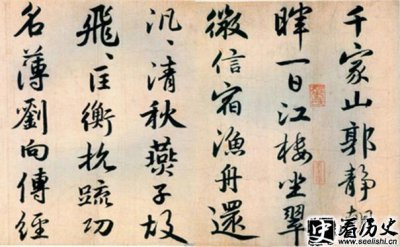 千家山郭靜朝
暉一日江樓坐翠
微信宿漁舟還
汎〻清秋燕子故
飛〻匡衡抗疏功
名薄劉向傳經
看历史
www.seelishi.com